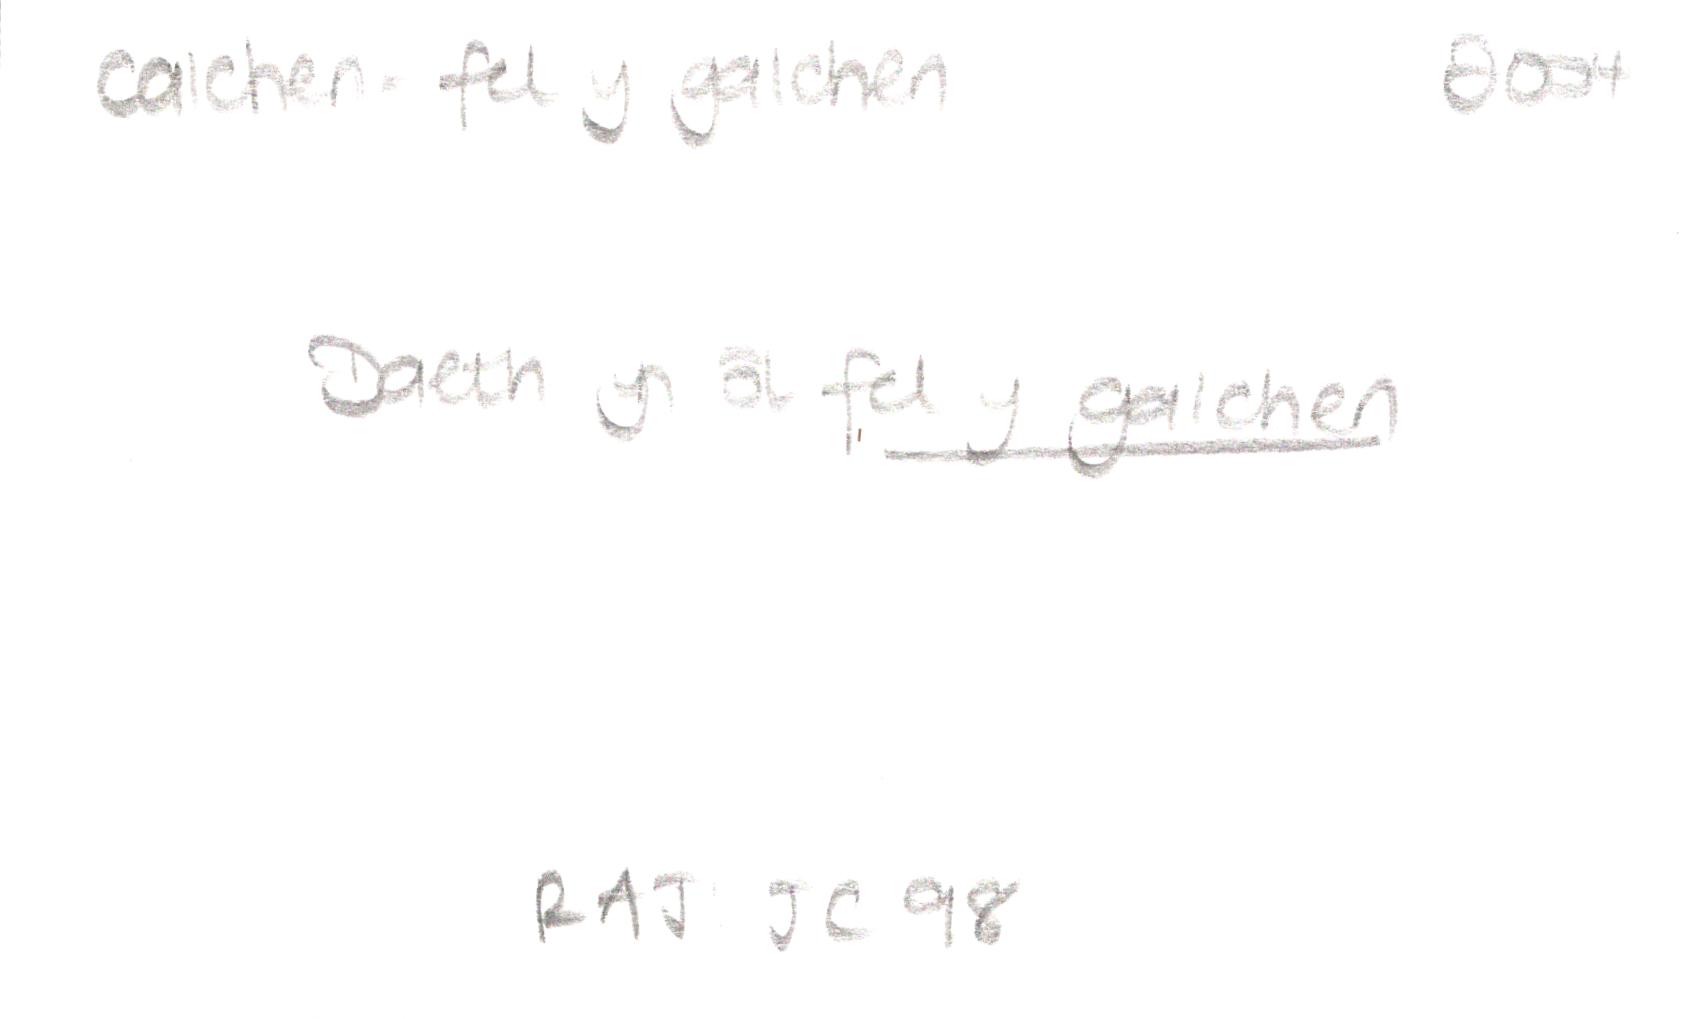 calchen - fel y galchen 2004
Daeth yn ôl fel y galchen
RAJ JC 98